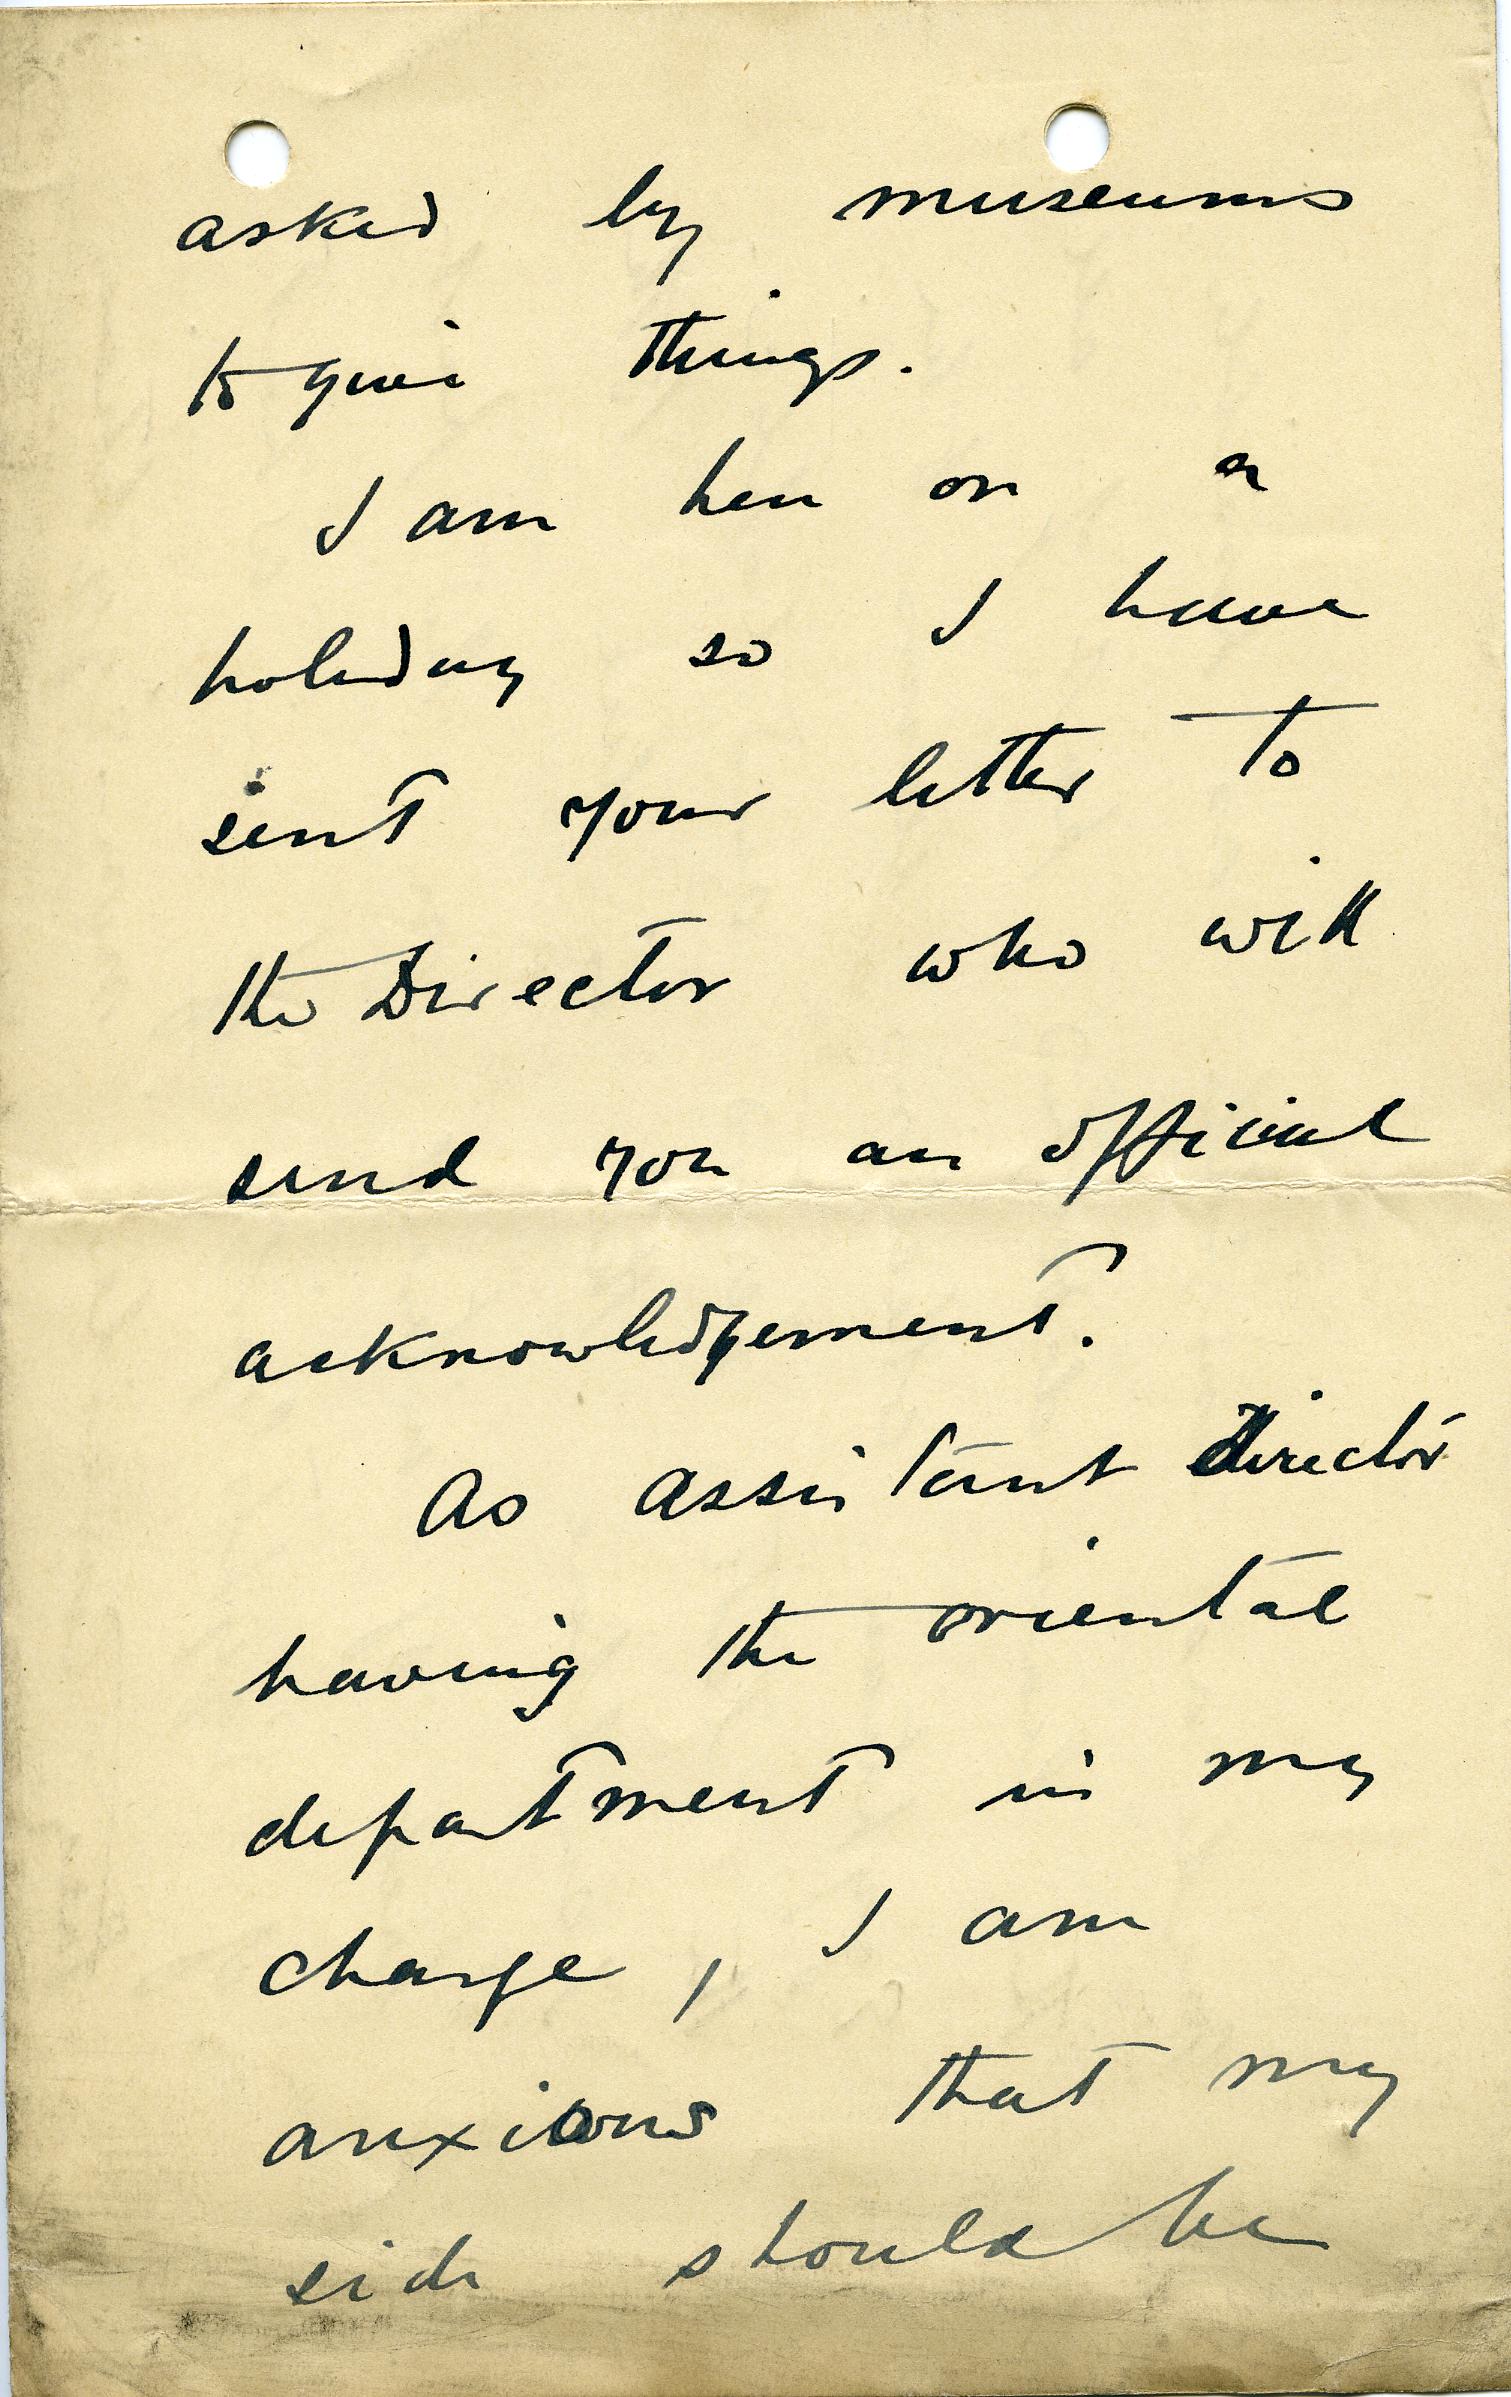 asked by museums
to give things.
I am here on a
holiday so I have
sent your letter to
the Director who will
send you an official
acknowledgement.
As assistant director
having the oriental
department in my
charge, I am
anxious that my
side should be